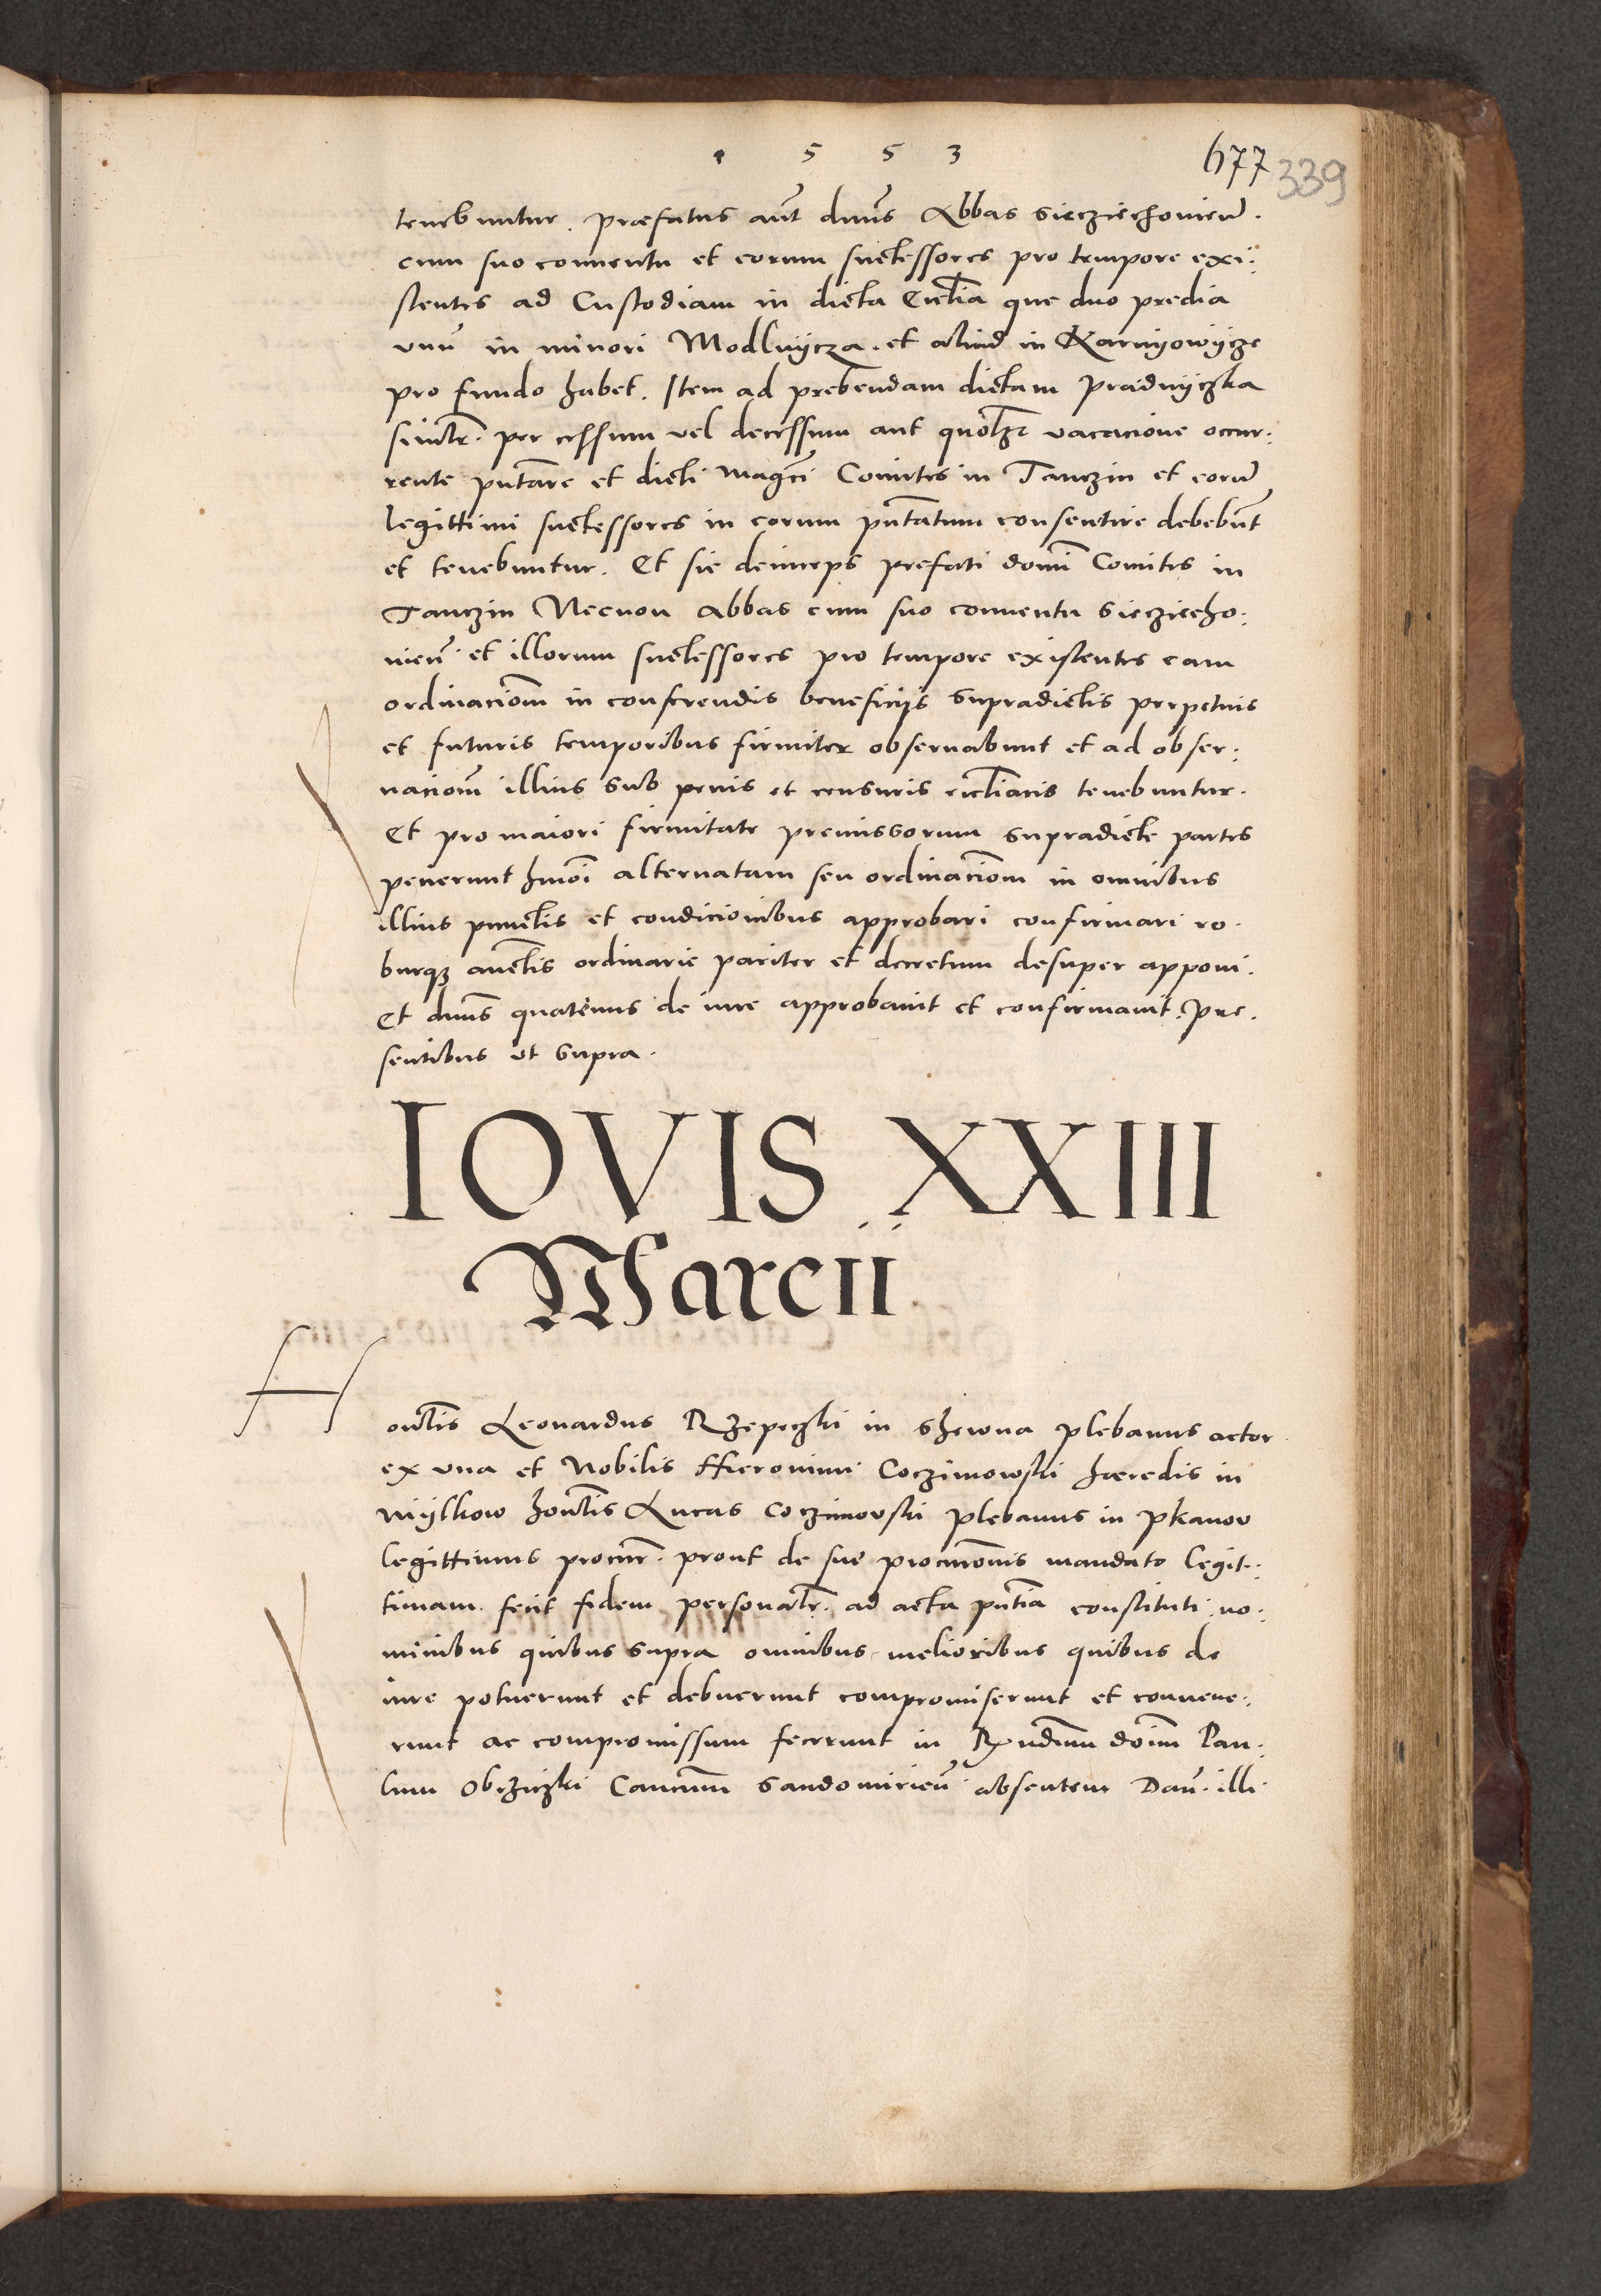 1 5 5 3
677 339
tenebuntur. Præfatus aut̃ dnus̃ Abbas Siecziechovieñ.
cum suo conventu et eorum successores pro tempore exi:
stentes ad Custodiam in dicta Ecclia que duo predia
unũ in minori Modlnÿcza. et aliud in Karnÿowÿcze
pro fundo habet. Item ad prebendam dictam Pradnÿczka
simlr̃. per cessum vel decessum aut quolz̃ vacacione occur:
rente pñtare et dicti magci Comites in Tanczin et eorũ
legittimi successores in eorum pñtatum consentire debebũt
et tenebuntur. Et sic deinceps prefati domĩ Comites in
Tanczin Necnon Abbas cum suo conventu Siecziecho:
vieñ. et illorum successores pro tempore existentes eam
ordinaciom̃ in conferendis beneficijs supradictis perpetuis
et futuris temporibus firmiter observabunt et ad obser:
vaciom̃ illius sub penis et censuris eccliacis tenebuntur.
Et pro maiori firmitate premissorum supradicte partes
pecierunt hmoĩ alternatam seu ordinaciom̃ in omnibus
illius punctis et condicionibus approbari confirmari ro:
burqz auctis ordinarie pariter et decretum desuper apponi.
Et dnus̃ quatenus de iure approbavit et confirmavit. Pre:
sentibus ut supra.
IOVIS XXIII
Marcii
Honlis Leonardus Rzepeczki in Skewna plebanus actor
ex una et Nobilis Hieronimi Coczimowski hæredis in
Wÿlkow honlis Lucas Coczimovski plebanus in Pkanov
legittimus procur̃. prout de sue procuronis mandato legit:
timam fecit fidem personalr̃. ad acta pñtia constituti no:
minibus quibus supra omnibus melioribus quibus de
iure potuerunt et debuerunt compromiserunt et convene:
runt ac compromissum fecerunt in Rndum doim̃ Pau:
lum Obrziczki Canicum Sandomirieñ absentem Dañ. illi